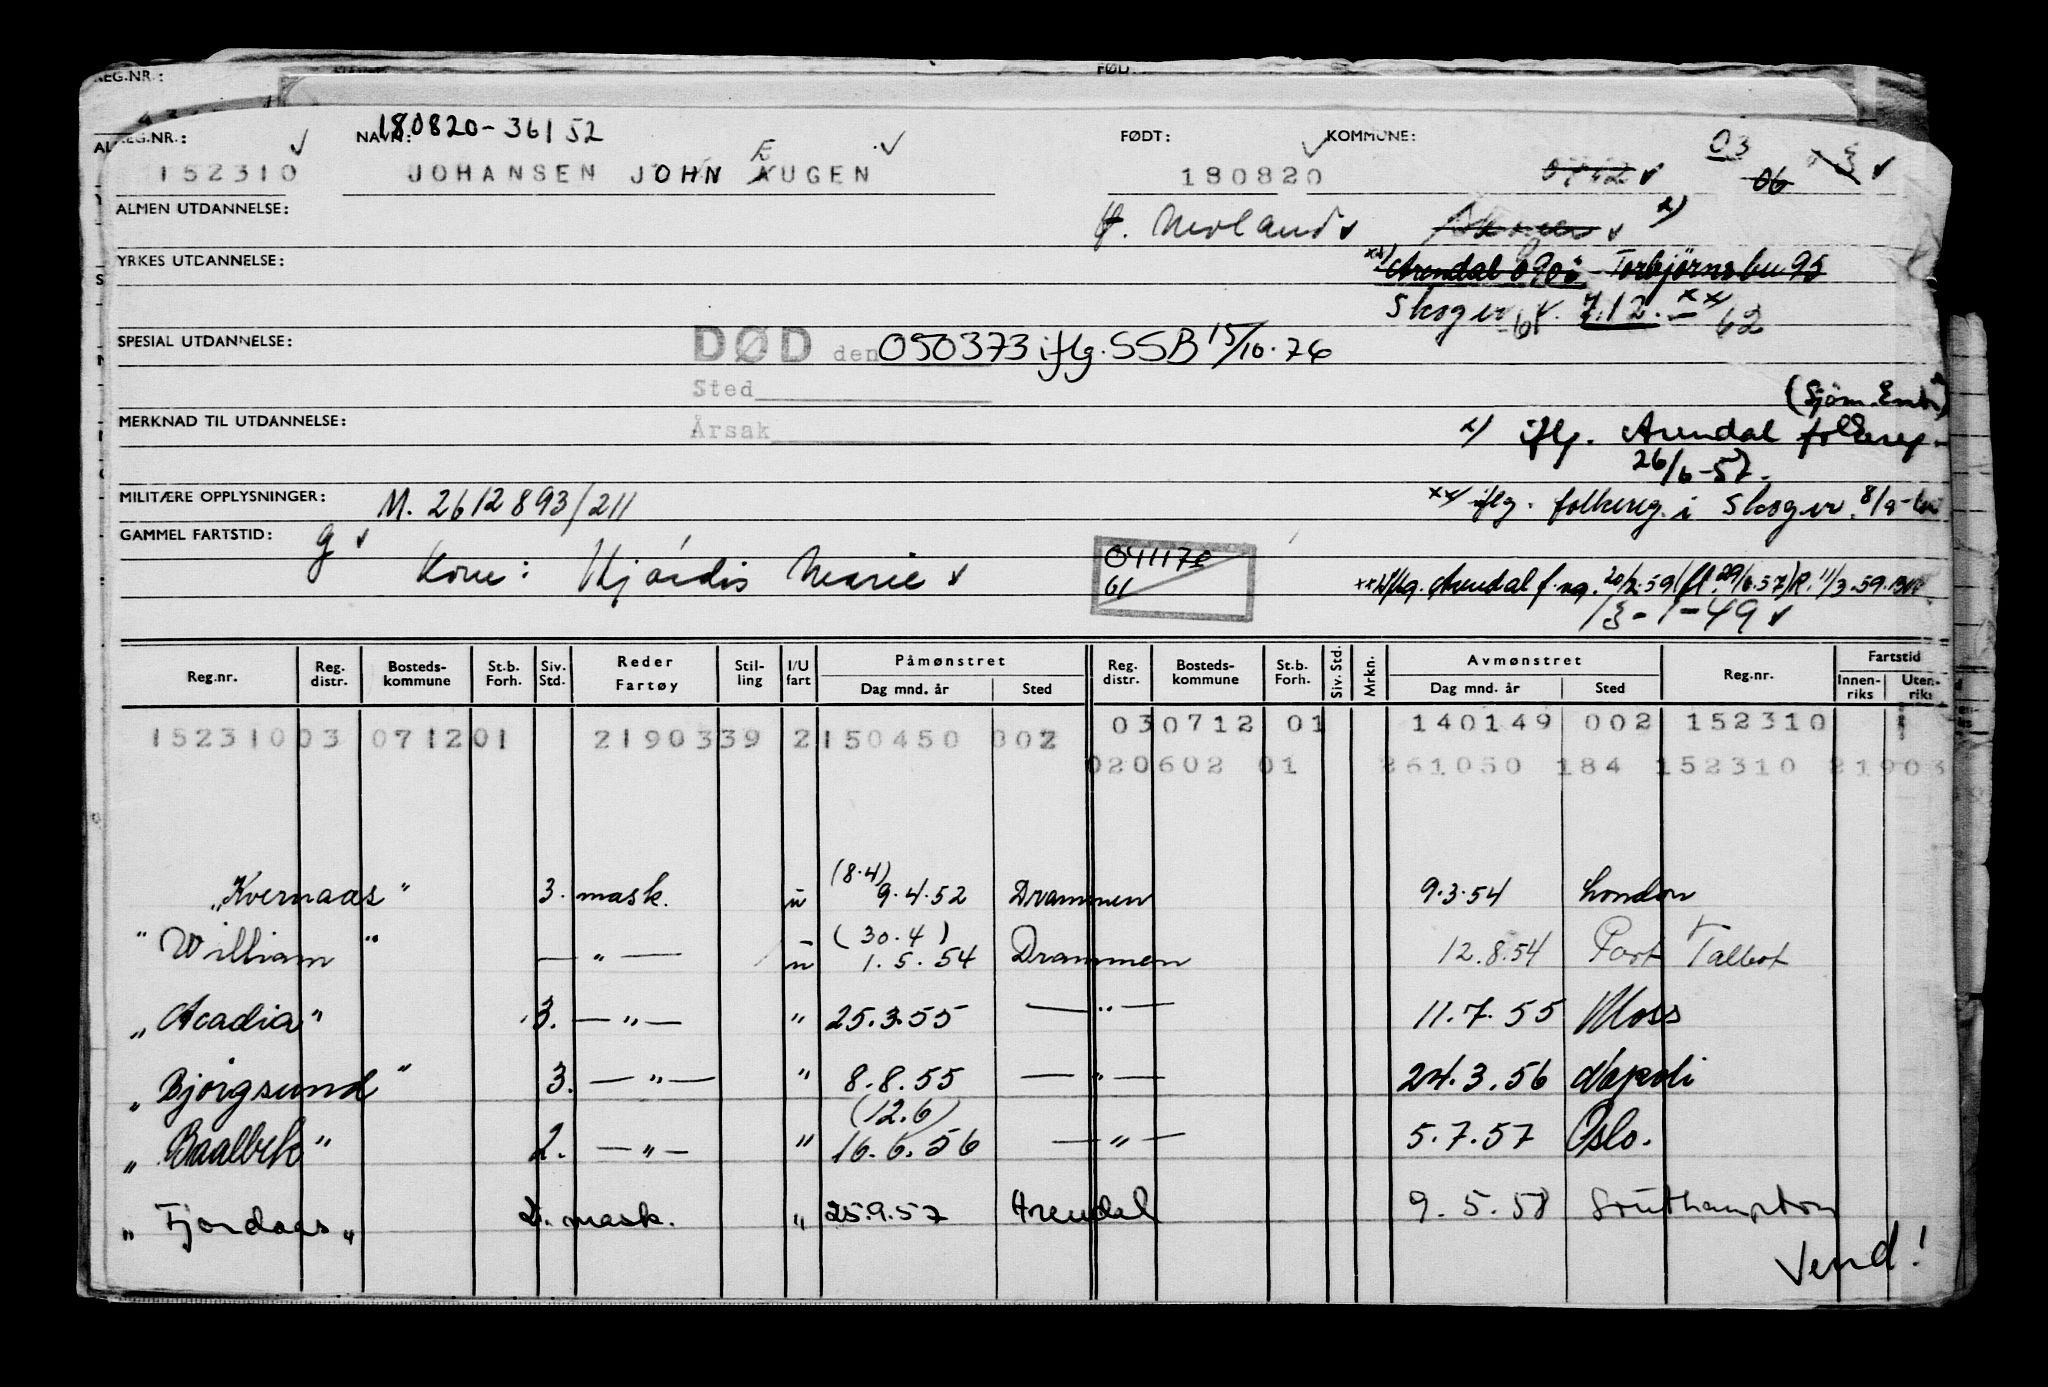 REG.NR.: FØD
REG.NR.: NAVN: 180820-36152 FØDT: KOMMUNE: 03
152310 JOHANSEN JOHN AUGEN E 180820 06
ALMEN UTDANNELSE: x)
YRKES UTDANNELSE: xx) Arendal Torbjørnsbu 95
Skoger 7.12. xx) 62
SPESIAL UTDANNELSE: DØD den 050373 iflg. SSB 15/10.76
Sted
(Sjøm.
MERKNAD TIL UTDANNELSE: Årsak x) iflg. Arendal folkereg.
26/6-57.
MILITÆRE OPPLYSNINGER: M. 2612893/211 xx) iflg. folkereg. i Skoger
GAMMEL FARTSTID: g
Kone: Hjørdis Marie 041170
61 iflg. Arendal f.reg. 20/2.59 (fl. 29/6.57) R. 11/3.59
13-1-49
Reg.nr. Reg. distr. Bosteds- kommune St.b. Forh. Siv. Std. Reder Fartøy Stil- ling I/U fart Påmønstret Reg. distr. Bosteds- kommune St.b. Forh. Siv. Std. Mrkn. Avmønstret Reg.nr. Fartstid
Dag mnd. år Sted Dag mnd. år Sted Innen- riks Uten- riks
030712 01 140149 002 152310
152310 03 071201 2190339 2 150450 002
020602 01 261050 184 152310 21903
„Kvernaas" 3. mask. u (8.4) 9.4.52 Drammen 9.3.54 London
"William" — " — u (30.4) 1.5.54 Drammen 12.8.54 Port Talbot
„Acadia" 3. — " — " 25.3.55 — " — 11.7.55 Moss
„Bjørgsund" 3. — " — " 8.8.55 — " — 24.3.56 Napoli
„Baalbek" 2. — " — " (12.6) 16.6.56 — " — 5.7.57 Oslo.
„Fjordaas„ 2. mask. " 25.9.57 Arendal 9.5.58 Southampton
Vend!